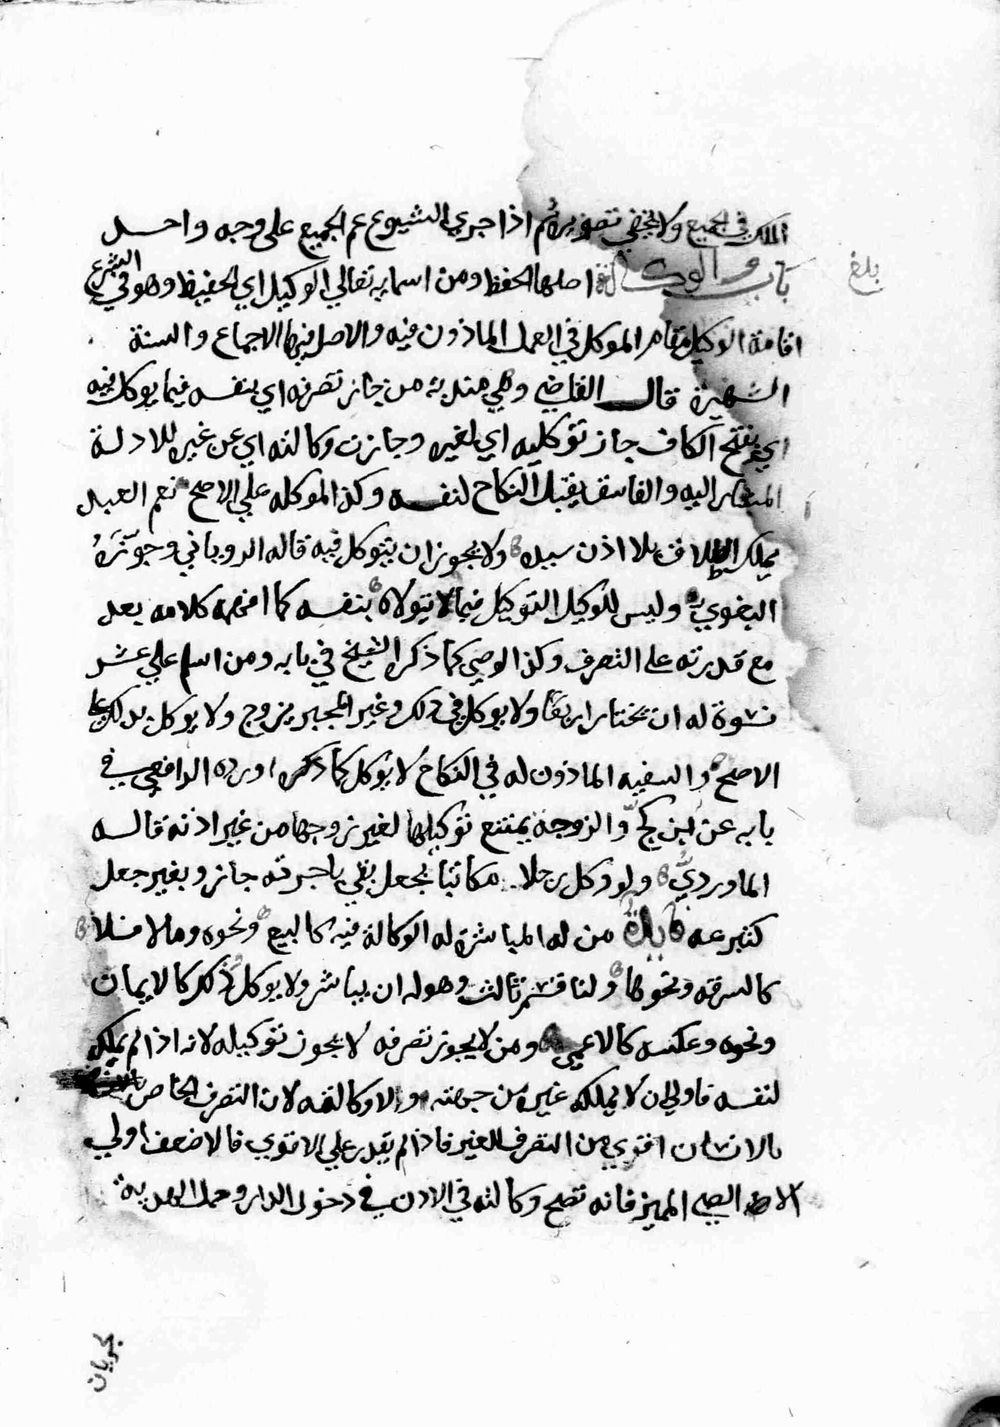 الملك في الجميع ولا يخفي تصويره ثم اذا جري الشيوع عم الجميع علي وجه واحد
بلغ
باب الوكالة اصلها الحفظ ومن اسمايه تعالي الوكيل اي الحفيظ وهو في الشرع
اقامة الوكيل مقام الموكل في العمل الماذون فيه والاصل فيها الاجماع والسنة
الشهيرة قال القاضي وهي مندبة من جاز تصرفه اي بنفسه فيما يوكل فيه
بفتح الكاف جاز توكليه اي لغيره وجازت وكالته اي عن غيره للادلة
المشار اليه والفاسق يقبل النكاح لنفسه وكذا لموكله علي الاصح نعم العبد
يملك الطلاق بلا اذن سيده ولا يجوز ان يتوكل فيه قاله الروياني وجوزه
البغوي وليس للوكيل التوكيل فيما لا يتولاه بنفسه كما افهمه كلامه بعد
مع قدرته علي التصرف وكذا الوصي كما ذكر الشيخ في بابه ومن اسلم علي عشر
نسوة له ان يختار اربعا ولا يوكل في ذلك وغير المجبر يزوج ولا يوكل بذلك علي
الاصح والسفيه الماذون له في النكاح لا يوكل كما ذكره اورده الرافعي في
بابه عن ابن كج والزوجة يمتنع توكيلها لغير زوجها من غير اذنه قاله
الماوردي ولو وكل رجلا مكاتبا بجعل يفي باجرته جاز وبغير جعل
كتبرعه فايدة من له المباشرة له الوكالة فيه كالبيع ونحوه وما لا فلا
كالسرقة ونحوها ولنا قسم ثالث وهو له ان يباشر ولا يوكل ذلك كالايمان
ونحوه وعكسه كالاعمي ومن لا يجوز تصرفه لا يجوز توكيله لانه اذا لم يملكه
لنفسه فاولي ان لا يملكه غيره من جهته ولا وكالته لان التصرف الخاص
بالانسان اقوي من التصرف للغير فاذا لم يقدر علي الاقوي فالاضعف اولي
الا الصبي المميز فانه تصح وكالته في الاذن في دخول الدار وحمل الهدية